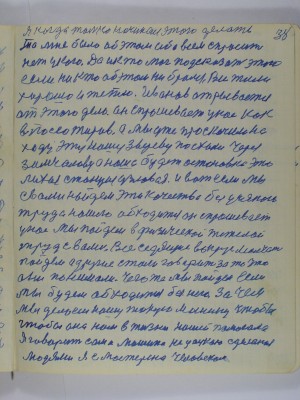 Я когда только начинаем этого делать
то мне было об этом совсем спросить
нет у кого. Да и кто мог подсказать этого
если никто об этом ни брался, Все жили
хорошо и тепло. Иванов отрывается
от этого дела. Он спрашивает у нас как
у пассажиров. А мы уже проскочили на
ходу эту нашу Звереву поехали через
Замчалово а наша будет остановка это
Лихая станция узловая. и вот если мы
с вами найдем это качество без всякого
труда нашего обходится он спрашивает
у нас мы пойдем в физической тяжелой
труд с вами. Все сидящие вокруг молчат
пойдем а другие стали говорить за это
они понимали. Чего же мы пойдем если
мы будем обходиться без него. Зачем
мы делаем нашу такую машину чтобы
чтобы она нам в жизни нашей помогала
Я говорит сама машина не ужели сделана
людями я с мастерена человеком
38